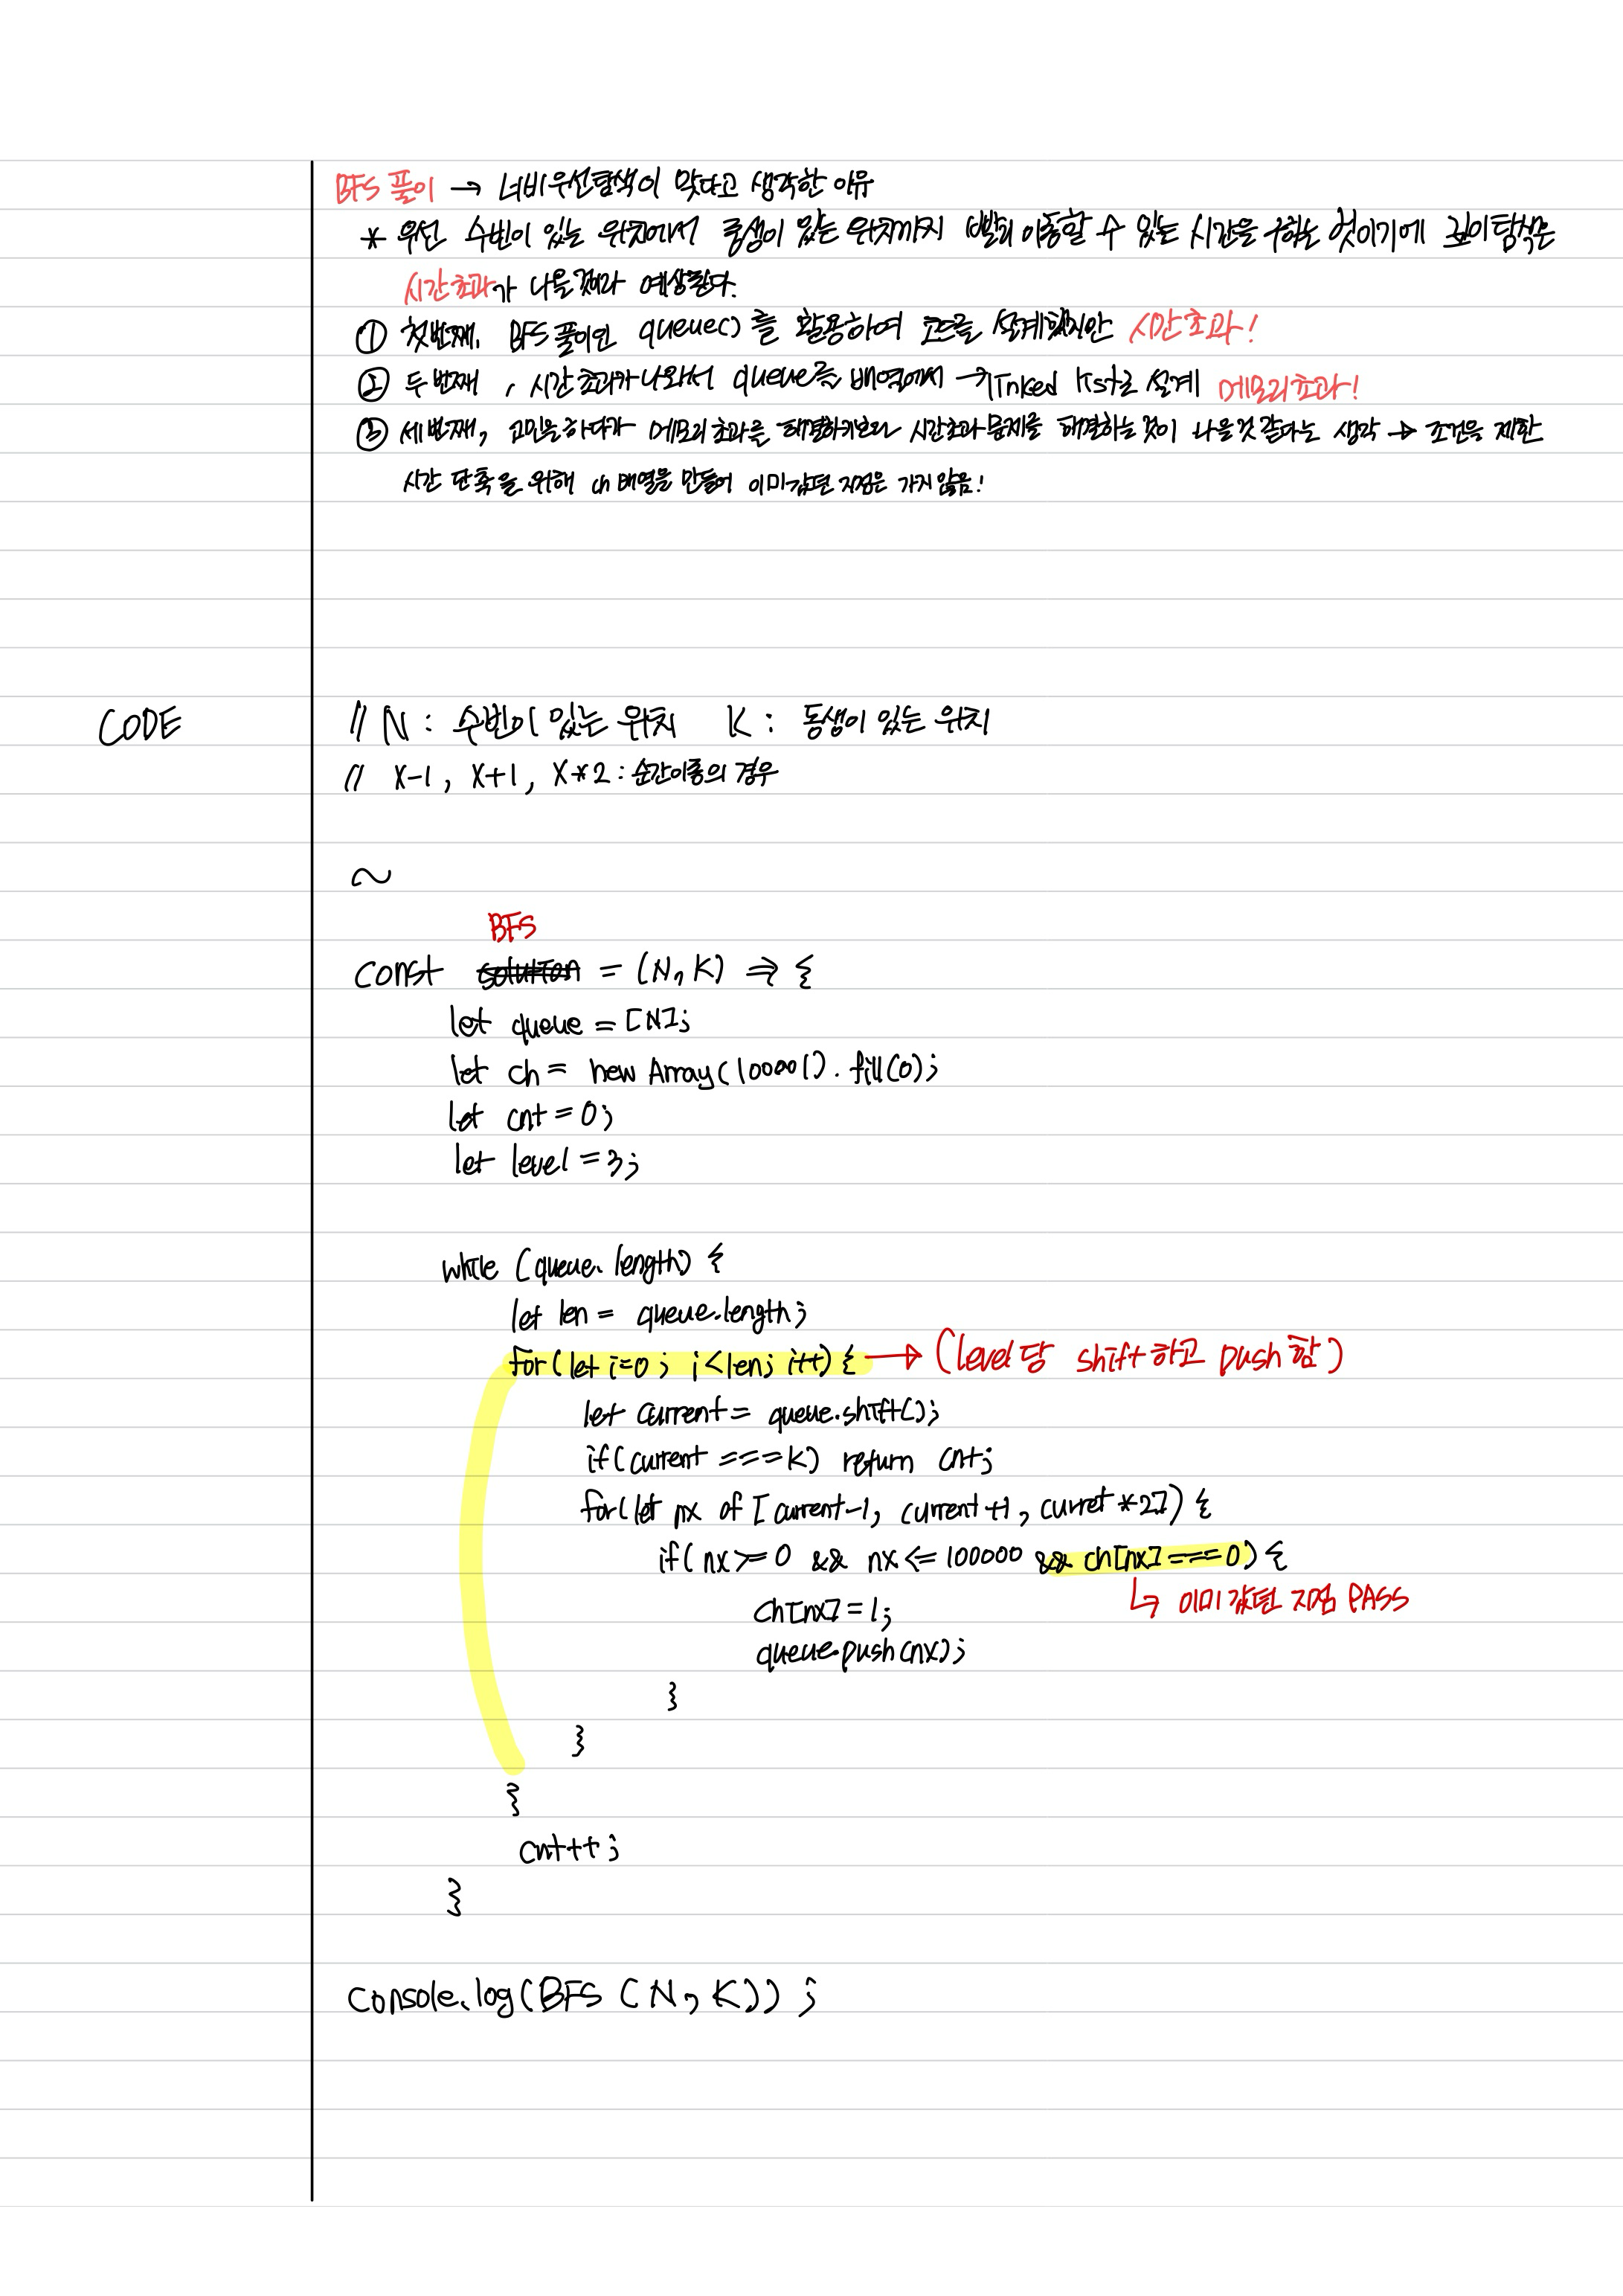 BFS 풀이 → 너비우선탐색이 맞다고 생각한 이유
* 우선 수빈이 있는 위치에서 동생이 있는 위치까지 빨리 이동할 수 있는 시간을 구하는 것이기에 깊이탐색은
시간초과가 나올것이라 예상된다.
① 첫번째. BFS 풀이인 queue()를 활용하여 코드를 설계했지만 시간초과!
② 두번째, 시간초과가 나와서 queue를 배열에서 → linked list로 설계 메모리초과!
③ 세번째, 고민을하다가 메모리초과를 해결하기보다 시간초과문제를 해결하는것이 나을것같다는 생각 → 조건을 제한
시간 단축을 위해 ch 배열을 만들어 이미갔던 지점은 가지않음!
CODE
// N : 수빈이 있는 위치 K : 동생이 있는 위치
// X-1, X+1, X*2 : 순간이동의 경우
~
BFS
const solution = (N, K) => {
let queue = [N];
let ch = new Array(100001).fill(0);
let cnt = 0;
let level = 3;
while (queue.length) {
let len = queue.length;
for(let i=0; i<len; i++) { → (level당 shift하고 push함)
let current = queue.shift();
if(current === K) return cnt;
for(let nx of [current-1, current+1, curret*2]) {
if(nx >= 0 && nx <= 100000 && ch[nx] === 0) {
↳ 이미 갔던 지점 PASS
ch[nx] = 1;
queue.push(nx);
}
}
}
cnt++;
}
console.log(BFS(N, K));